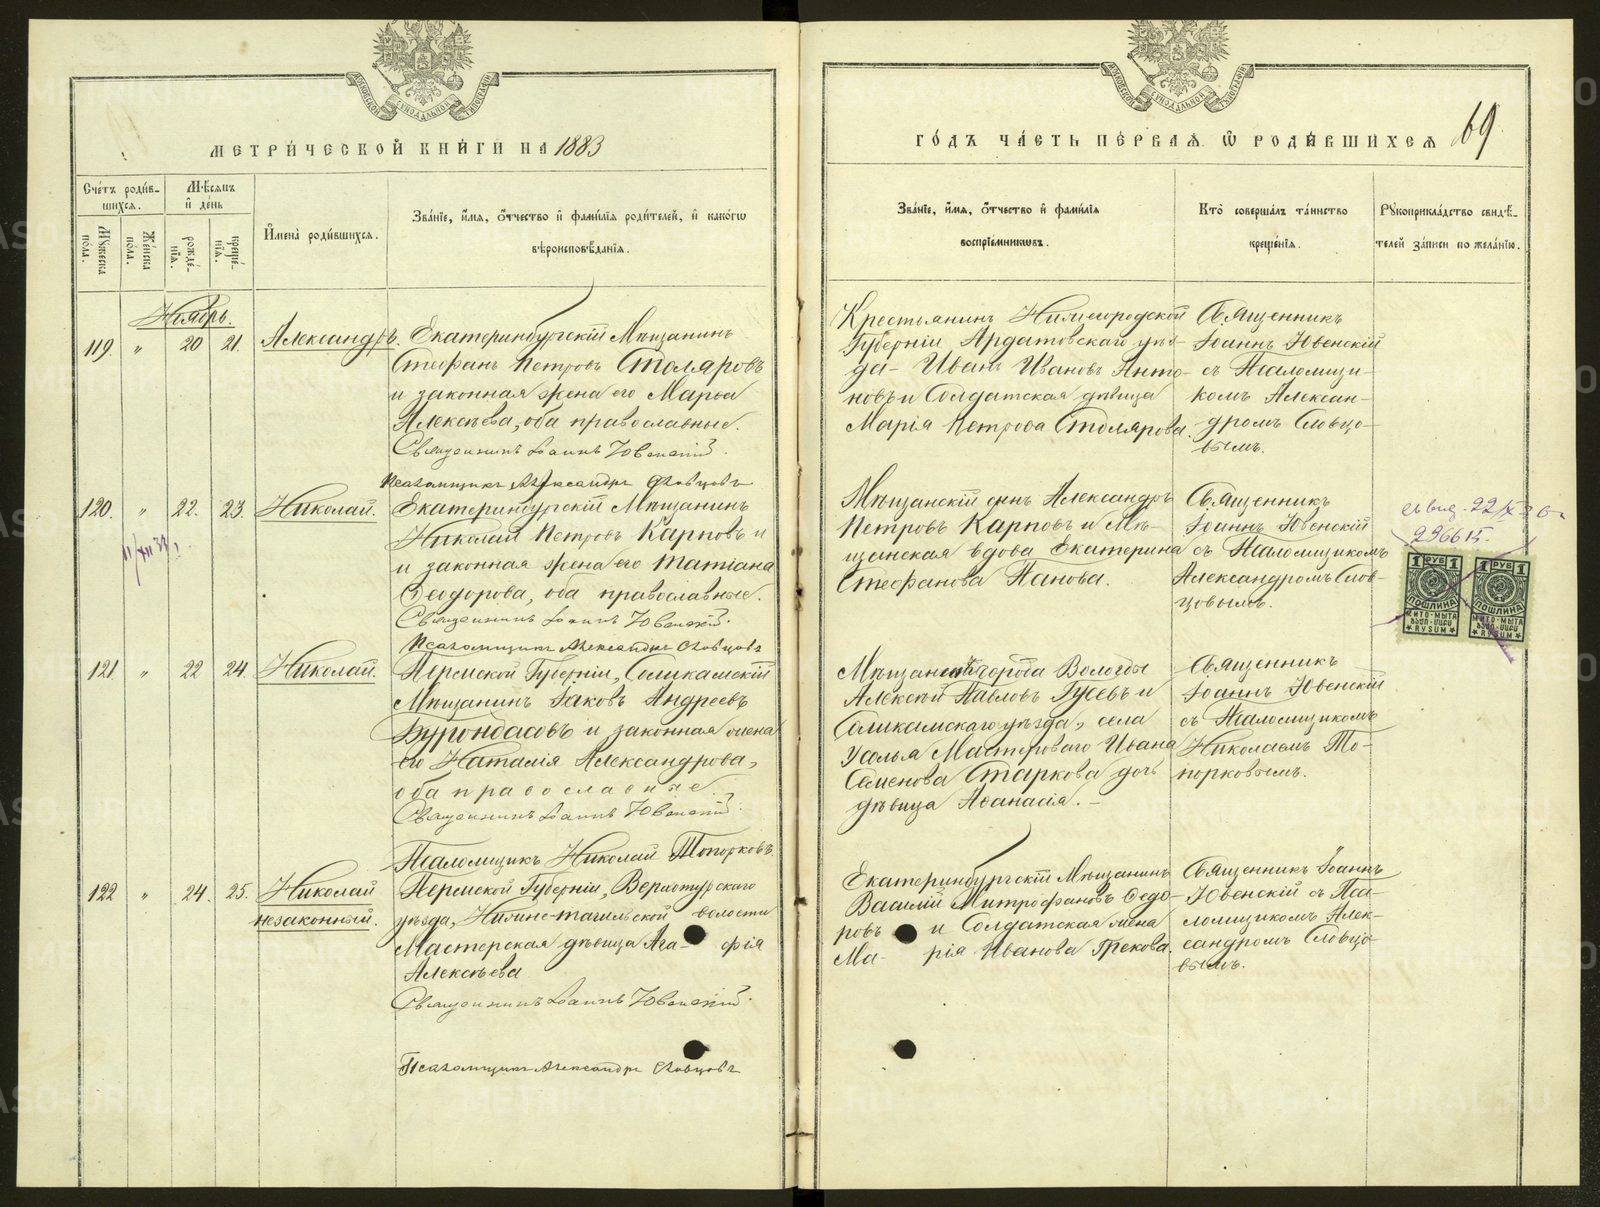 МЕТРИ́ЧЕСКОЙ КНИ́ГИ НА 1883
Счéтъ роди́в-
шихся.
Мѣ́сяцъ
и́ дéнь
Мýжеска
пóла.
Жéнска
пóла.
рождé-
нїя.
крещé-
нїя.
И́менà роди́вшихся.
Звáнїе, и́мя, о́тчество и́ фами́лїя роди́телей, и́ какóгѡ
вѣроисповѣ́данїя.
Ноябрь.
119. " 20 21. Александръ.
Екатеринбургскій Мѣщанинъ
Стефанъ Петровъ Столяровъ
и законная жена его Марья
Алексѣева, оба православные.
Священникъ Іоаннъ Ювенскій.
Псаломщикъ Александръ Словцовъ
120. " 22. 23. Николай.
Екатеринбургскій Мѣщанинъ
Николай Петровъ Карповъ и
и законная жена его Татіана
Ѳеодорова, оба православные.
Священникъ Іоаннъ Ювенскій.
Псаломщикъ Александръ Словцовъ
121. " 22 24. Николай.
Пермской Губерніи, Соликамскій
Мѣщанинъ Іаковъ Андреевъ
Бурондасовъ и законная жена
его Наталія Александрова,
оба православные.
Священникъ Іоаннъ Ювенскій.
Псаломщикъ Николай Топорковъ.
122 " 24. 25. Николай
незаконный.
Пермской Губерніи, Верхотурскаго
уѣзда, Нижне-тагильской волости
Мастерская дѣвица Ага- фія
Алексѣева
Священникъ Іоаннъ Ювенскій.
Псаломщикъ Александръ Словцовъ
ГÓДЪ ЧÁСТЬ ПÉРВАЯ Ѿ РОДИ́ВШИХСЯ 69
Звáнїе, и́мя, о́тчество и́ фами́лїя
воспрїéмникѡвъ.
Ктò совершáлъ тáинство
крещéнїя.
Рукоприклáдство свидѣ́-
телей зáписи по желáнїю.
Крестьянинъ Нижегородской
Губерніи Ардатовскаго уѣз-
да- Иванъ Ивановъ Анто-
новъ и Солдатская дѣвица
Марія Петрова Столярова.
Священникъ
Іоаннъ Ювенскій
съ Псаломщи-
комъ Алексан-
дромъ Словцо-
вымъ.
Мѣщанскій сынъ Александръ
Петровъ Карповъ и Мѣ-
щанская вдова Екатерина
Стефанова Панова.
Священникъ
Іоаннъ Ювенскій
съ Псаломщикомъ
Александромъ Слов-
цовымъ.
1 РУБ 1
ПОШЛИНА
МИТО-МЫТА
RYSUM
1 РУБ 1
ПОШЛИНА
МИТО-МЫТА
RYSUM
Алексѣй Павловъ Гусевъ и
Соликамскаго уѣзда, села
Усолья Мастероваго Ивана
Семенова Старкова дочь
дѣвица Аѳанасія.
Священникъ
Іоаннъ Ювенскій
съ Псаломщикомъ
Николаемъ То-
порковымъ.
Екатеринбургскій Мѣщанинъ
Василій Митрофановъ Ѳедо-
ровъ и Солдатская жена
Ма- рія Иванова Грекова.
Священникъ Іоаннъ
Ювенскій съ Пса-
ломщикомъ Алек-
сандромъ Словцо-
вымъ.
METRIKI.GASO-URAL.RU